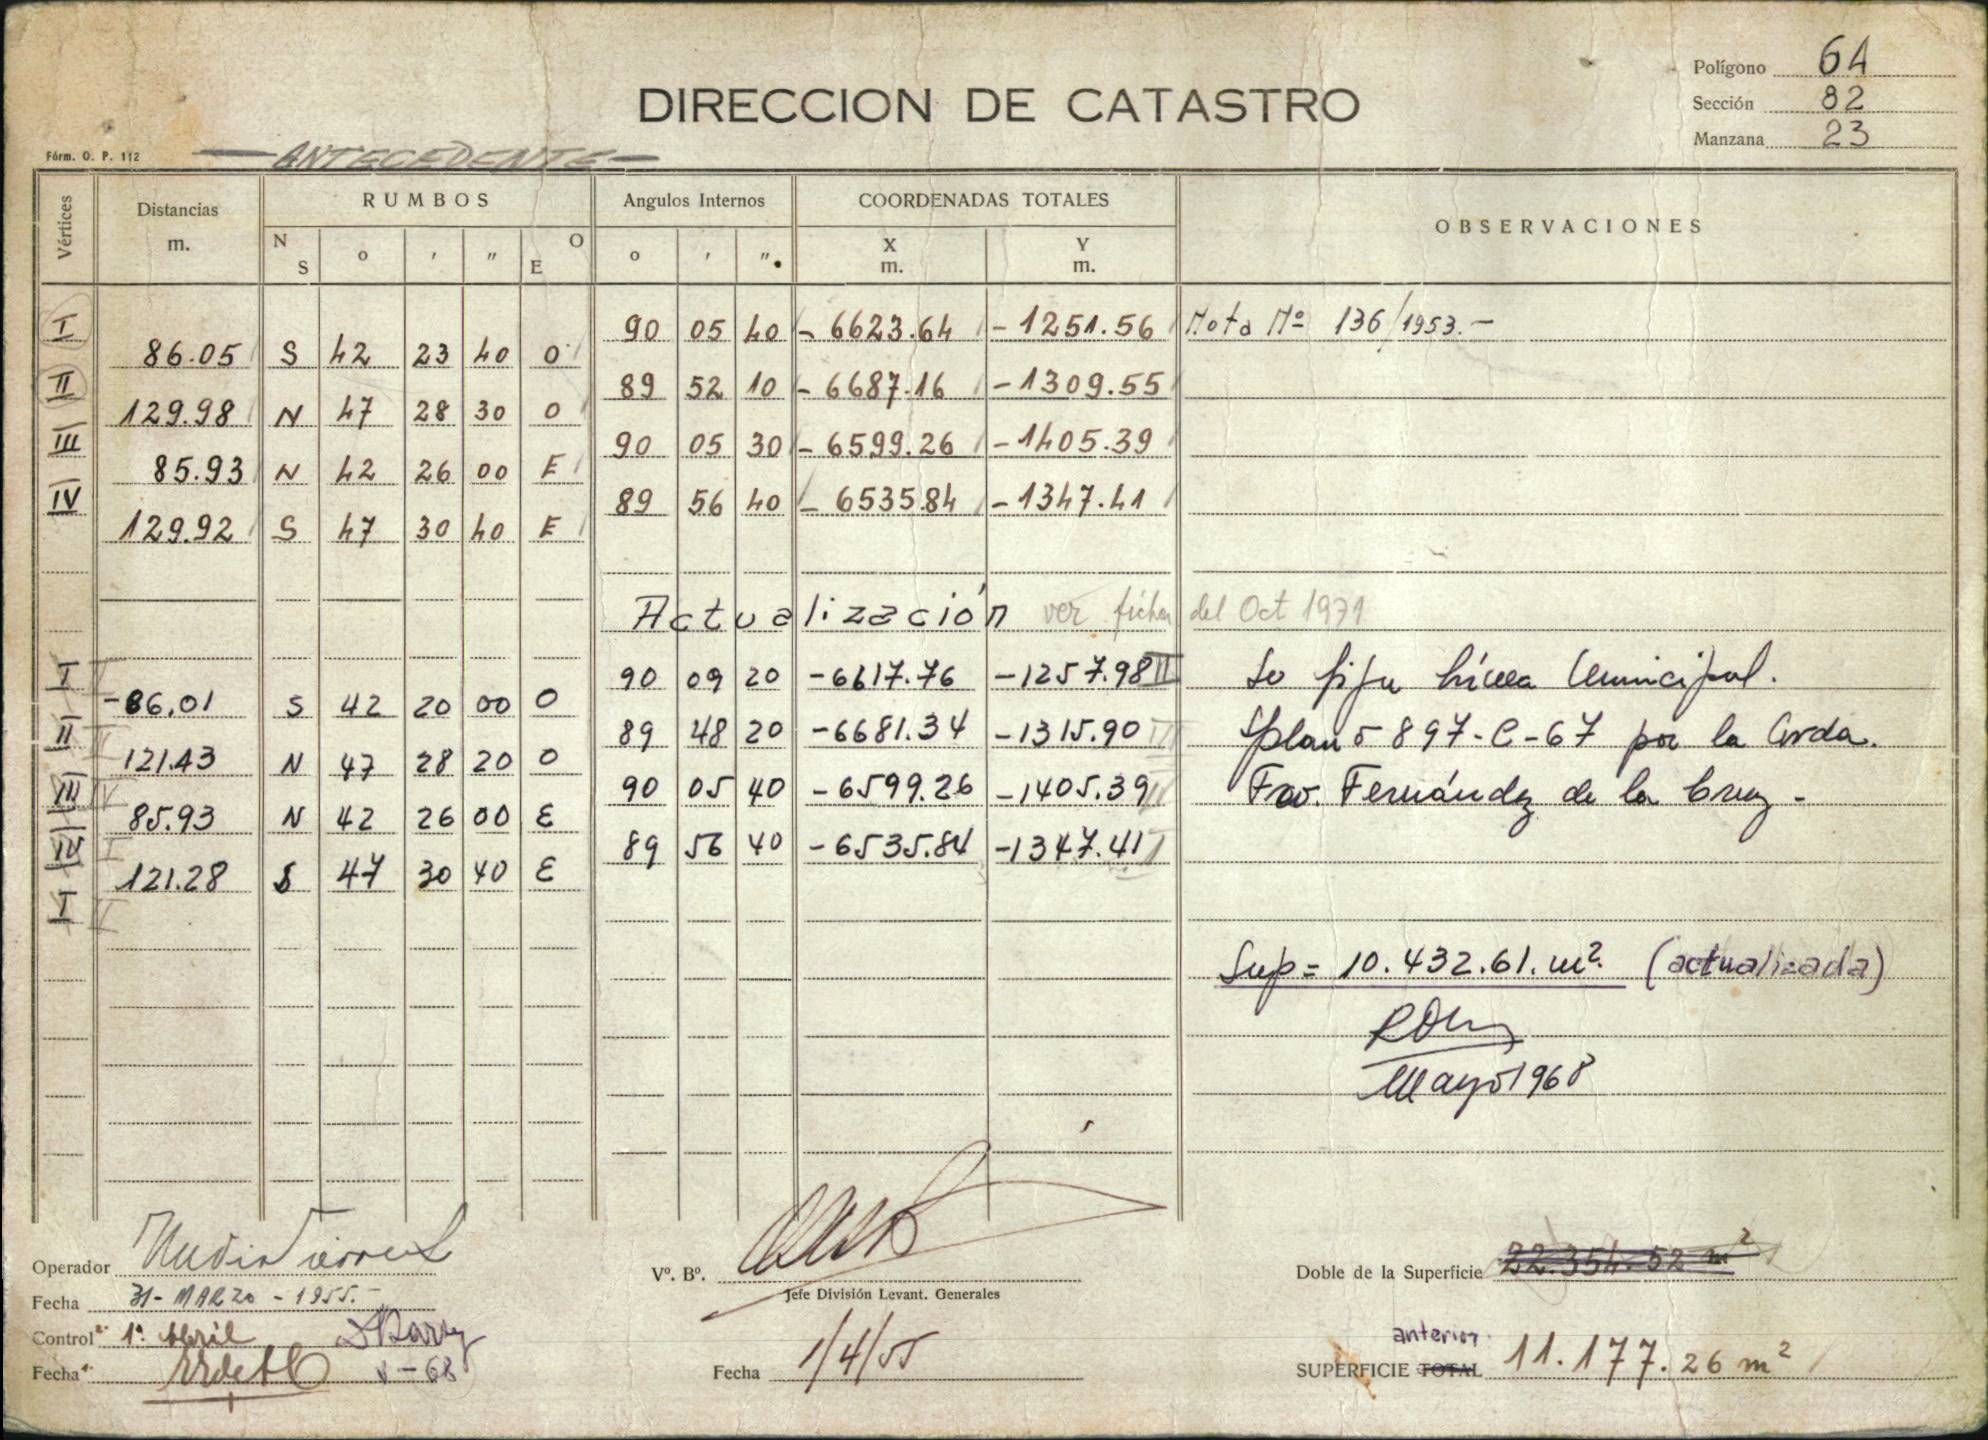 Polígono 64
DIRECCION DE CATASTRO
Sección 82
Manzana 23
Fórm. O. P. 112 — ANTECEDENTE —
Vértices Distancias m. RUMBOS N S o ' " O E Angulos Internos o ' " COORDENADAS TOTALES X m. Y m. OBSERVACIONES
I 90 05 40 -6623.64 -1251.56 Nota Nº 136/1953.-
86.05 S 42 23 40 O
II 89 52 10 -6687.16 -1309.55
129.98 N 47 28 30 O
III 90 05 30 -6599.26 -1405.39
85.93 N 42 26 00 E
IV 89 56 40 -6535.84 -1347.41
129.92 S 47 30 40 E
Actualización ver ficha del Oct 1971
I 90 09 20 -6617.76 -1257.98 II Se fija línea Municipal.
86.01 S 42 20 00 O
II 89 48 20 -6681.34 -1315.90 III Splano 897-C-67 por la Avda.
121.43 N 47 28 20 O
III IV 90 05 40 -6599.26 -1405.39 Fco. Fernández de la Cruz -
85.93 N 42 26 00 E
IV I 89 56 40 -6535.84 -1347.41 I
121.28 S 47 30 40 E
I
Sup = 10.432.61. m². (actualizada)
Mayo 1968
Operador
Vº. Bº.
Doble de la Superficie 22.354.52 m²
Jefe División Levant. Generales
Fecha 31 - MARZO - 1955.-
Control 1º. Abril
anterior
Fecha V-68
Fecha 1/4/55
SUPERFICIE TOTAL 11.177.26 m²